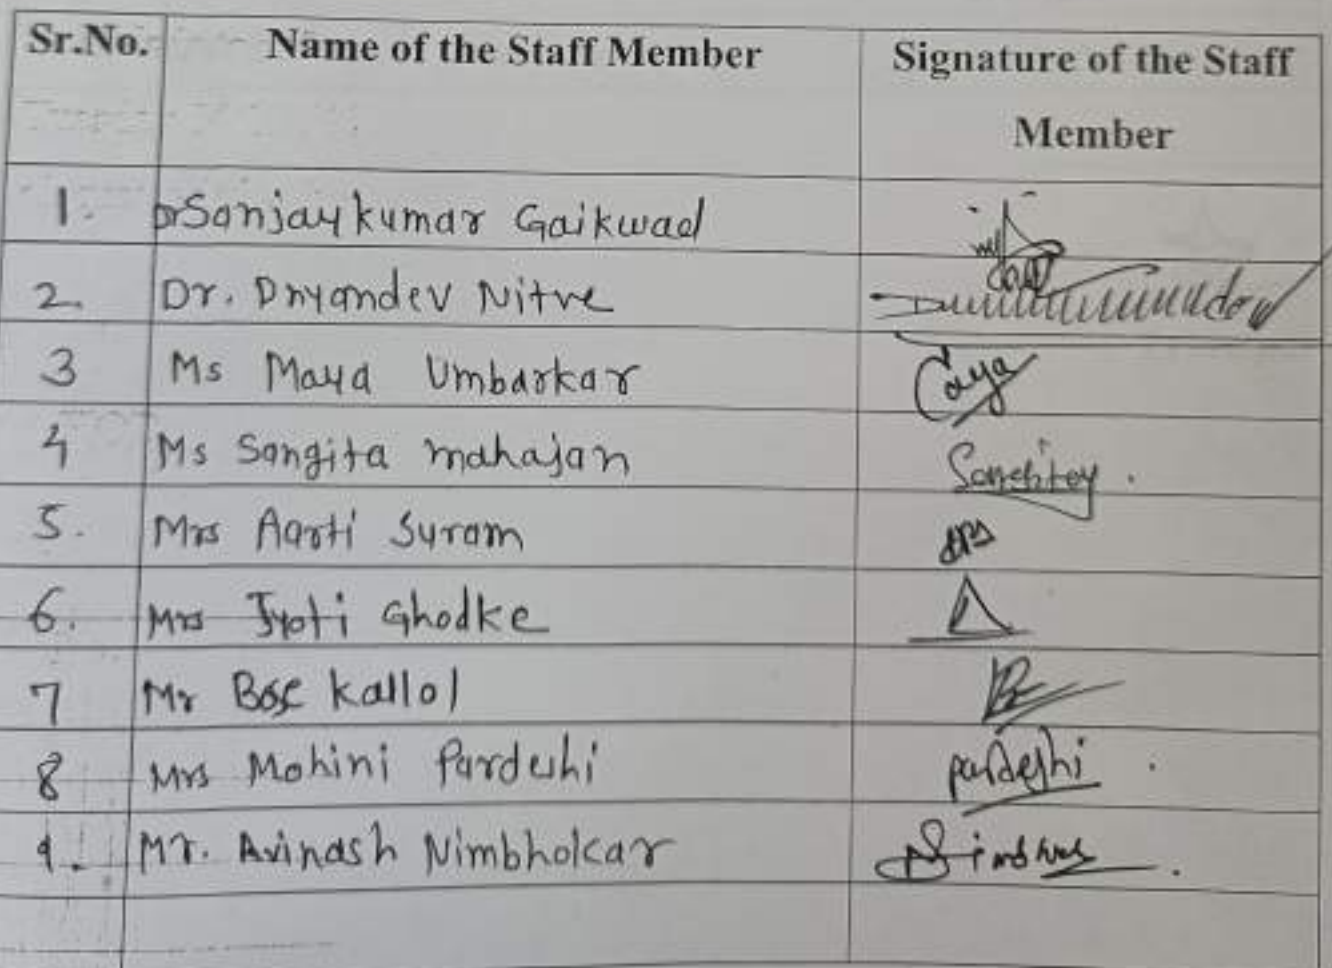 Sr.No. Name of the Staff Member Signature of the Staff
Member
1. Dr Sanjaykumar Gaikwad
2. Dr. Dnyandev Nitve
3 Ms Maya Umbarkar
4 Ms Sangita mahajan
5. Mrs Aarti Suram
6. Mrs Jyoti Ghodke
7 Mr Bose kallol
8 Mrs Mohini Pardeshi pardeshi
9. Mr. Avinash Nimbholkar